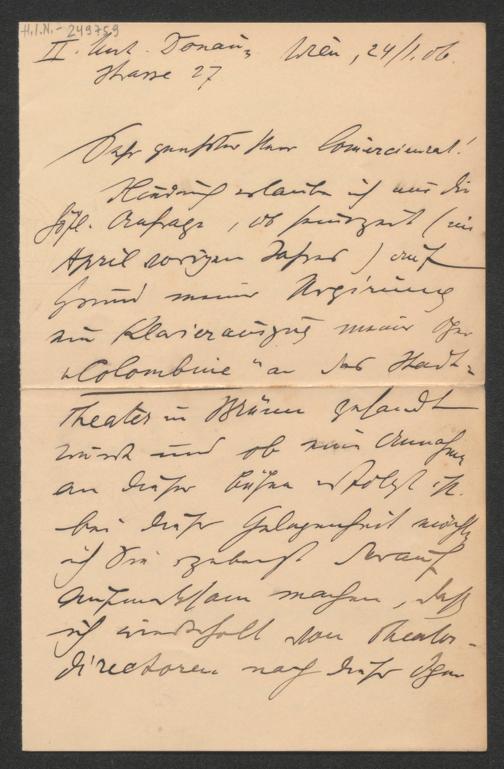 H.I.N.- 249759
II. Unt. Donau-
Wien, 24/1.06.
strasse 27
Sehr geehrter Herr Comercienrat!
Hiedurch erlaube ich mir die
höfl. Anfrage, ob seinerzeit (im
April vorigen Jahres) auf
Grund meiner
ein Klavierauszug meiner Oper
"Colombine" an das Stadt-
Theater in Brünn gesandt
wurde und ob eine Annahme
an dieser Bühne erfolgt ist.
bei dieser Gelegenheit möchte
ich Sie ergebenst darauf
aufmerksam machen, daß
ich wiederholt von Theater-
directoren nach dieser Oper